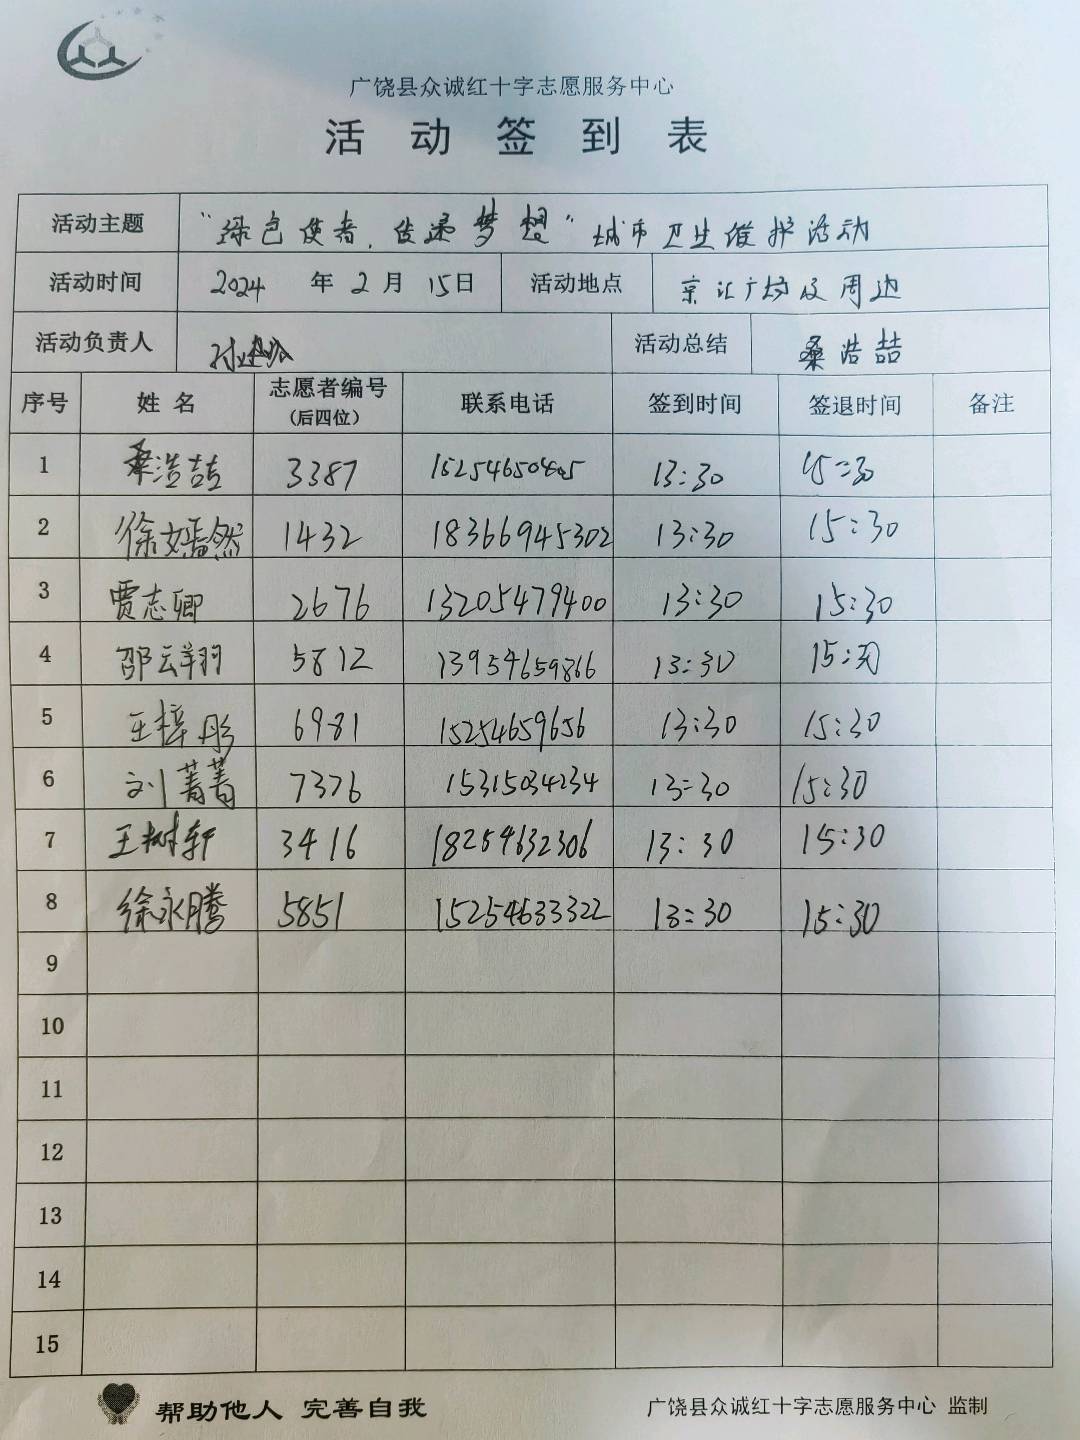 广饶县众诚红十字志愿服务中心
活动签到表
活动主题 “绿色使者,传递梦想”城市卫生维护活动
活动时间 2024年2月15日 活动地点 京汇广场及周边
活动负责人 活动总结 桑浩喆
序号 姓名 志愿者编号(后四位) 联系电话 签到时间 签退时间 备注
1 桑浩喆 3387 13:30 15:30
2 徐嫣然 1432 18366945302 13:30 15:30
3 贾志卿 2676 13205479400 13:30 15:30
4 邵云翔 5812 13954659866 13:30 15:30
5 王梓彤 6981 15254659656 13:30 15:30
6 刘菁菁 7376 15315034234 13:30 15:30
7 王树轩 3416 18254632306 13:30 15:30
8 徐永腾 5851 15254633322 13:30 15:30
9
10
11
12
13
14
15
帮助他人 完善自我 广饶县众诚红十字志愿服务中心 监制